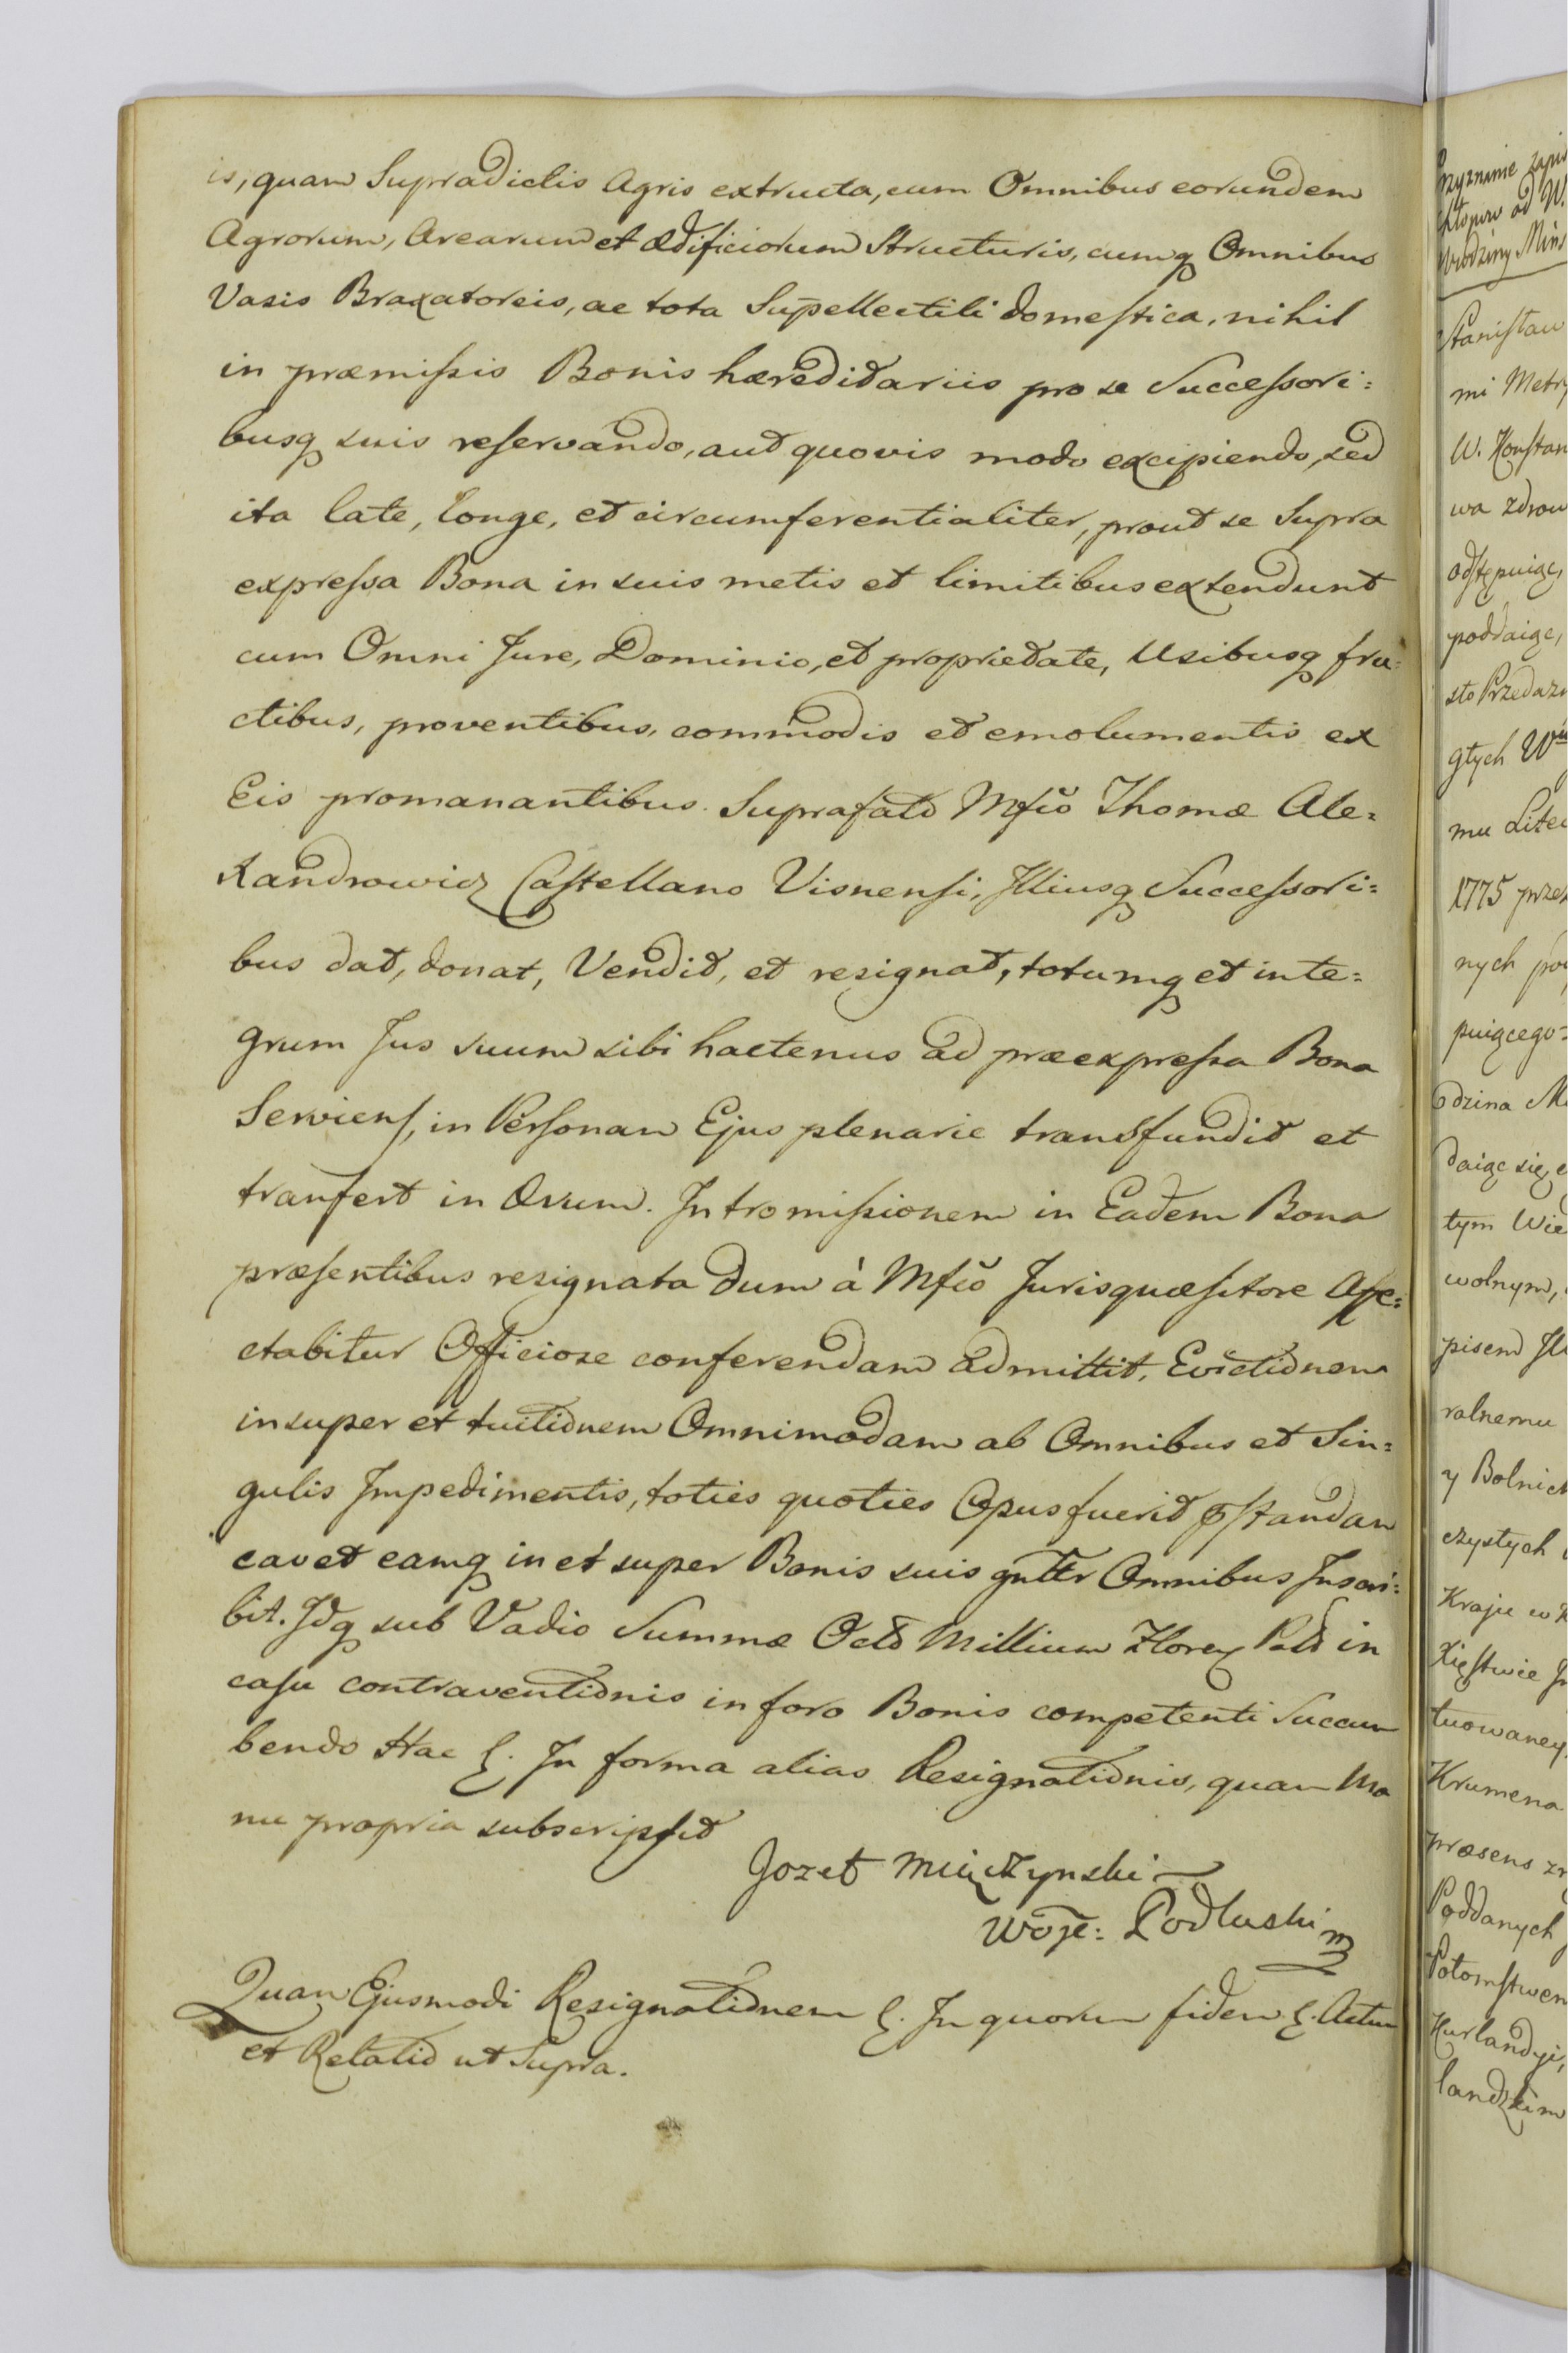 is, quam Supradictis Agris extructa, cum Omnibus eorundem
Agrorum, Arearum et ædificiorum Structuris, cumq Omnibus
Vasis Braxatoreis, ac tota Supellectili domestica, nihil
in præmissis Bonis hæreditariis pro se Successori=
busq suis reservando, aut quovis modo excipiendo, sed
ita late, longe, et circumferentialiter, prout se Supra
expressa Bona in suis metis et limitibus extendunt
cum Omni Jure, Dominio, et proprietate, Usibusq fru=
ctibus, proventibus, commodis et emolumentis ex
Eis promanantibus. Suprafato Mfco Thomæ Ale=
xandrowicz Castellano Visnensi, Illiusq Successori=
bus dat, donat, Vendit, et resignat, totumq et inte=
grum Jus suum sibi hactenus ad præexpressa Bona
Serviens, in Personam Ejus plenarie transfundit et
transfert in Ævum. Intromissionem in Eadem Bona
præsentibus resignata dum à Mfco Jurisquæsitore Affe=
ctabitur Officiose conferendam admittit, Evictionem
insuper et tuitionem Omnimodam ab Omnibus et Sin=
gulis Impedimentis, toties quoties Opus fuerit pstandam
cavet eamq in et super Bonis suis gnltr Omnibus Inscri=
bit. Idq sub Vadio Summæ Octo Millium Floren Poll in
casu contraventionis in foro Bonis competenti Succum
bendo Hac &. In forma alias Resignationis, quam Ma
nu propria subscripsit
Jozef Miączynski
Woje: Podluski
Quam Ejusmodi Resignationem &. In quorum fidem &. Actum
et Relatio ut Supra.
Przyznanie
od W.
Stanisław
mi Metry
W. Konstan
wa zdrow
odstępuiąc,
poddaiąc,
sto Przedazn
głych
mu Litew
1775 przez
nych
puiącego=
dzina
daiąc się
tym
wolnym,
pisem
ralnemu
y Bolnick
czystych
Kraju w
Xięstwie
tuowaney
Krumena
præsens
Poddanych
Potomstwem
Kurlandyi,
landzkim